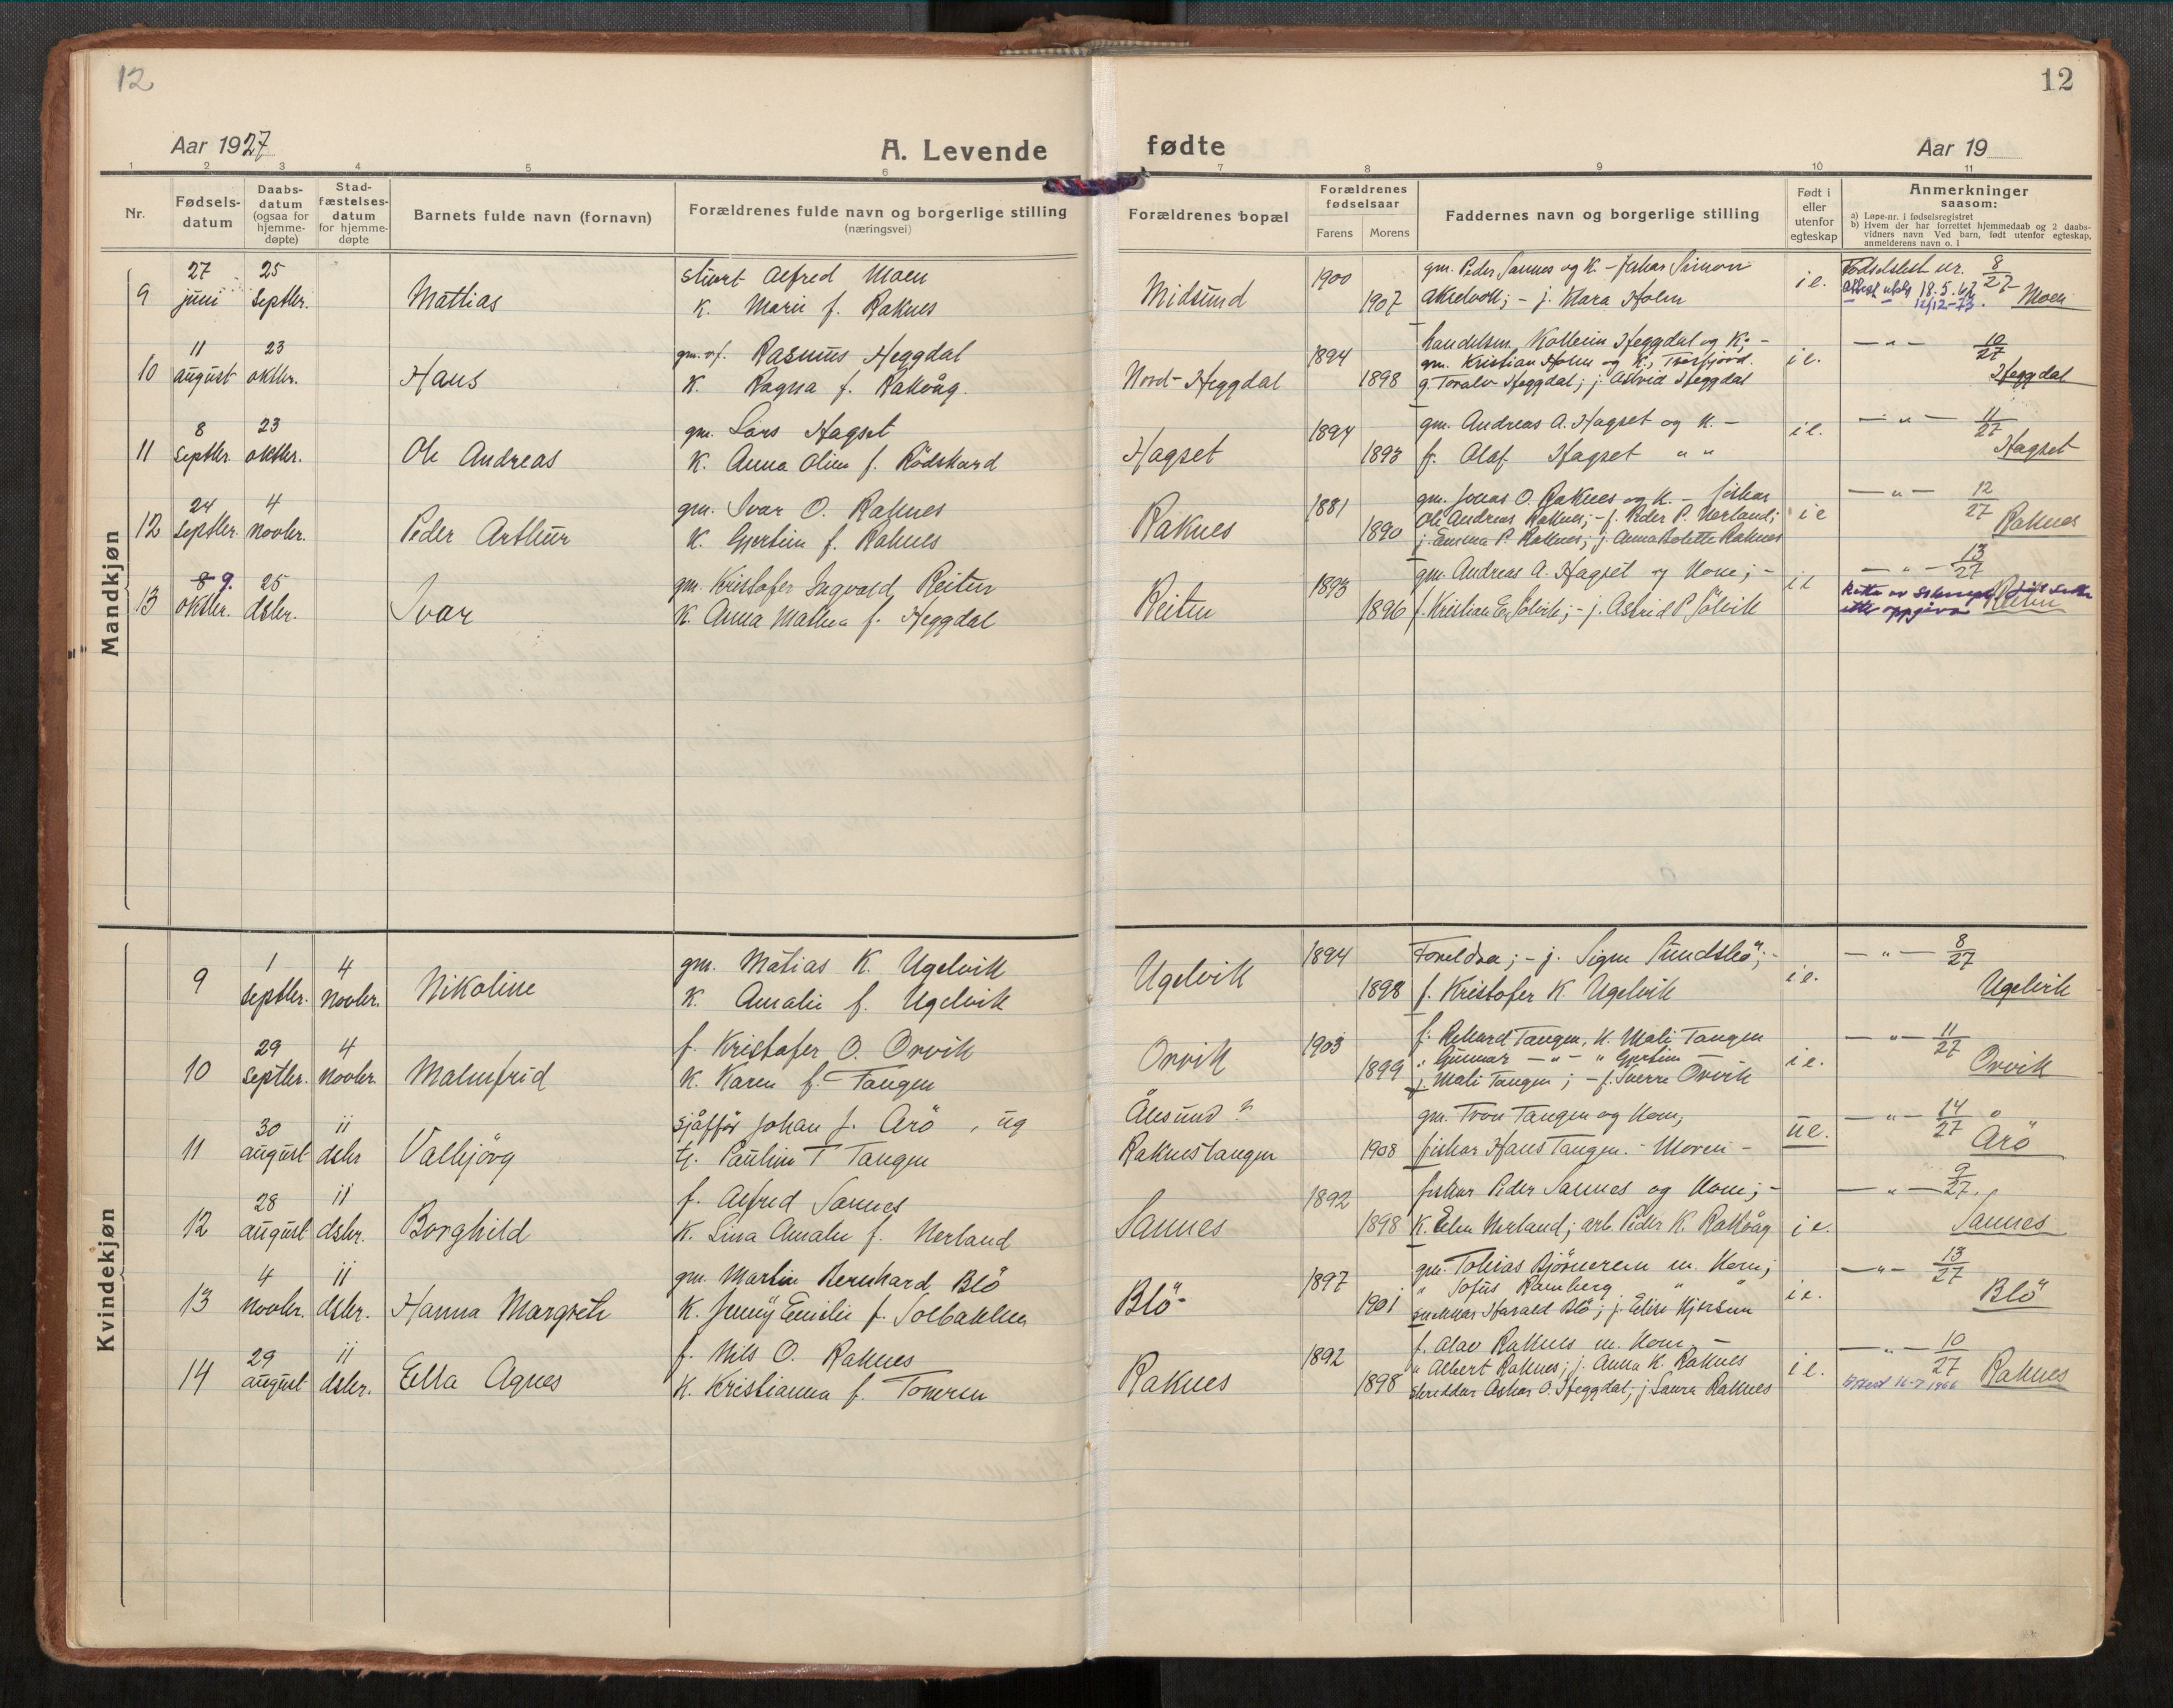 12
12
Aar 1927
A. Levende
fødte
Aar 19
1 2 3 4 5 6 7 8 9 10 11
Nr.
Fødsels-
datum
Daabs-
datum
(ogsaa for
hjemme-
døpte)
Stad-
fæstelses-
datum
for hjemme-
døpte
Barnets fulde navn (fornavn)
Forældrenes fulde navn og borgerlige stilling
(næringsvei)
Forældrenes bopæl
Forældrenes
fødselsaar
Farens Morens
Faddernes navn og borgerlige stilling
Født i
eller
utenfor
egteskap
Anmerkninger
saasom:
a) Løpe-nr. i fødselsregistret
b) Hvem der har forrettet hjemmedaab og 2 daabs-
vidners navn Ved barn, født utenfor egteskap,
anmelderens navn o. l
Mandkjøn
9 27 juni 25 septbr. Mattias
Alfred Moen
K. Marie f. Raknes
Midsund 1900 1907
gm. Peder Sannes og K. - Simon
j. Mara Holm
i e.
nr. 8/27 18.5.
12/12-73. Moen
10 11 august 23 oktbr. Hans
Rasmus Heggdal
K. Ragna f. Rakvåg.
Nord-Heggdal 1894 1898
handelsm. Heggdal og K; -
gm. Kristian Holm og K;
Toralv Heggdal; j. Astrid Heggdal
i e.
— " — 10/27
Heggdal
11 8 septbr. 23 oktbr. Ole Andreas
gm. Lars Hagset
K. Anna Oline f. Rödskard
Hagset 1894 1893
gm. Andreas A. Hagset og K. -
f. Olaf Hagset " "
i e.
— " — 11/27
Hagset
12 24 septbr. 4 novbr. Peder Arthur
gm. Ivar O. Raknes
K. Gjertine f. Raknes
Raknes 1881 1890
gm. Jonas O. Raknes og K. - fiskar
Ole Andreas Raknes; - f. Peder P. Nerland;
j. Emma P. Raknes; j. Anna Bolette Raknes
i e
— " — 12/27
Raknes
13 8 9. oktbr. 25 dsbr. Ivar
gm. Kristofer Ingvald Reiten
K. Anna Mathea f. Heggdal
Reiten 1893 1896
gm. Andreas A. Hagset og Kone; -
f. Kristian E. Sølvik; - j. Astrid P. Sølvik
i e
— " — 13/27
Reiten
Kvindekjøn
9 1 septbr. 4 novbr. Nikoline
gm. Matias K. Ugelvik
K. Amalie f. Ugelvik
Ugelvik 1894 1898
Foreldra; - j. Signe Sundsbö; -
f. Kristofer K. Ugelvik
i e.
— " — 8/27
Ugelvik
10 29 septbr. 4 novbr. Malmfrid
f. Kristofer O. Orvik
K. Karen f. Tangen
Orvik 1903 1899
f. Rikard Tangen, K. Mali Tangen
" Gunnar — " — " Gjertine —
j. Mali Tangen; - f. Sverre Orvik
i e.
— " — 11/27
Orvik
11 30 august 11 dsbr Valbjörg
sjåffør Johan J. Arö , ug
tj. Pauline T Tangen
Ålesund
Raknestangen 1908
gm. Tron Tangen og Kone;
fiskar Hans Tangen. - Moren -
u e.
— " — 14/27
Arö
12 28 august 11 dsbr. Borghild
f. Alfred Sannes
K. Lina Amalie f. Nerland
Sannes 1892 1898
fiskar Peder Sannes og Kone; -
K. Elen Nerland; arb. Peder K. Rakvåg
i e.
— " — 9/27.
Sannes
13 4 novbr. 11 dsbr. Hanna Margrete
gm. Martin Bernhard Blö
K. Jenny Emilie f. Solbakken
Blö 1897 1901
gm. Tobias Björnerem m. Kone;
" Sofus Ramberg " "
Harald Blö; j. Elise
i e.
— " — 13/27
Blö
14 29 august 11 dsbr. Ella Agnes
f. Nils O. Raknes
K. Kristianna f. Tomren
Raknes 1892 1898
f. Olav Raknes m. Kone -
" Albert Raknes; j. Anna K. Raknes
Skreddar Askar O. Heggdal; j Laura Raknes
i e.
— " — 10/27
Attest 16-7 1966 Raknes